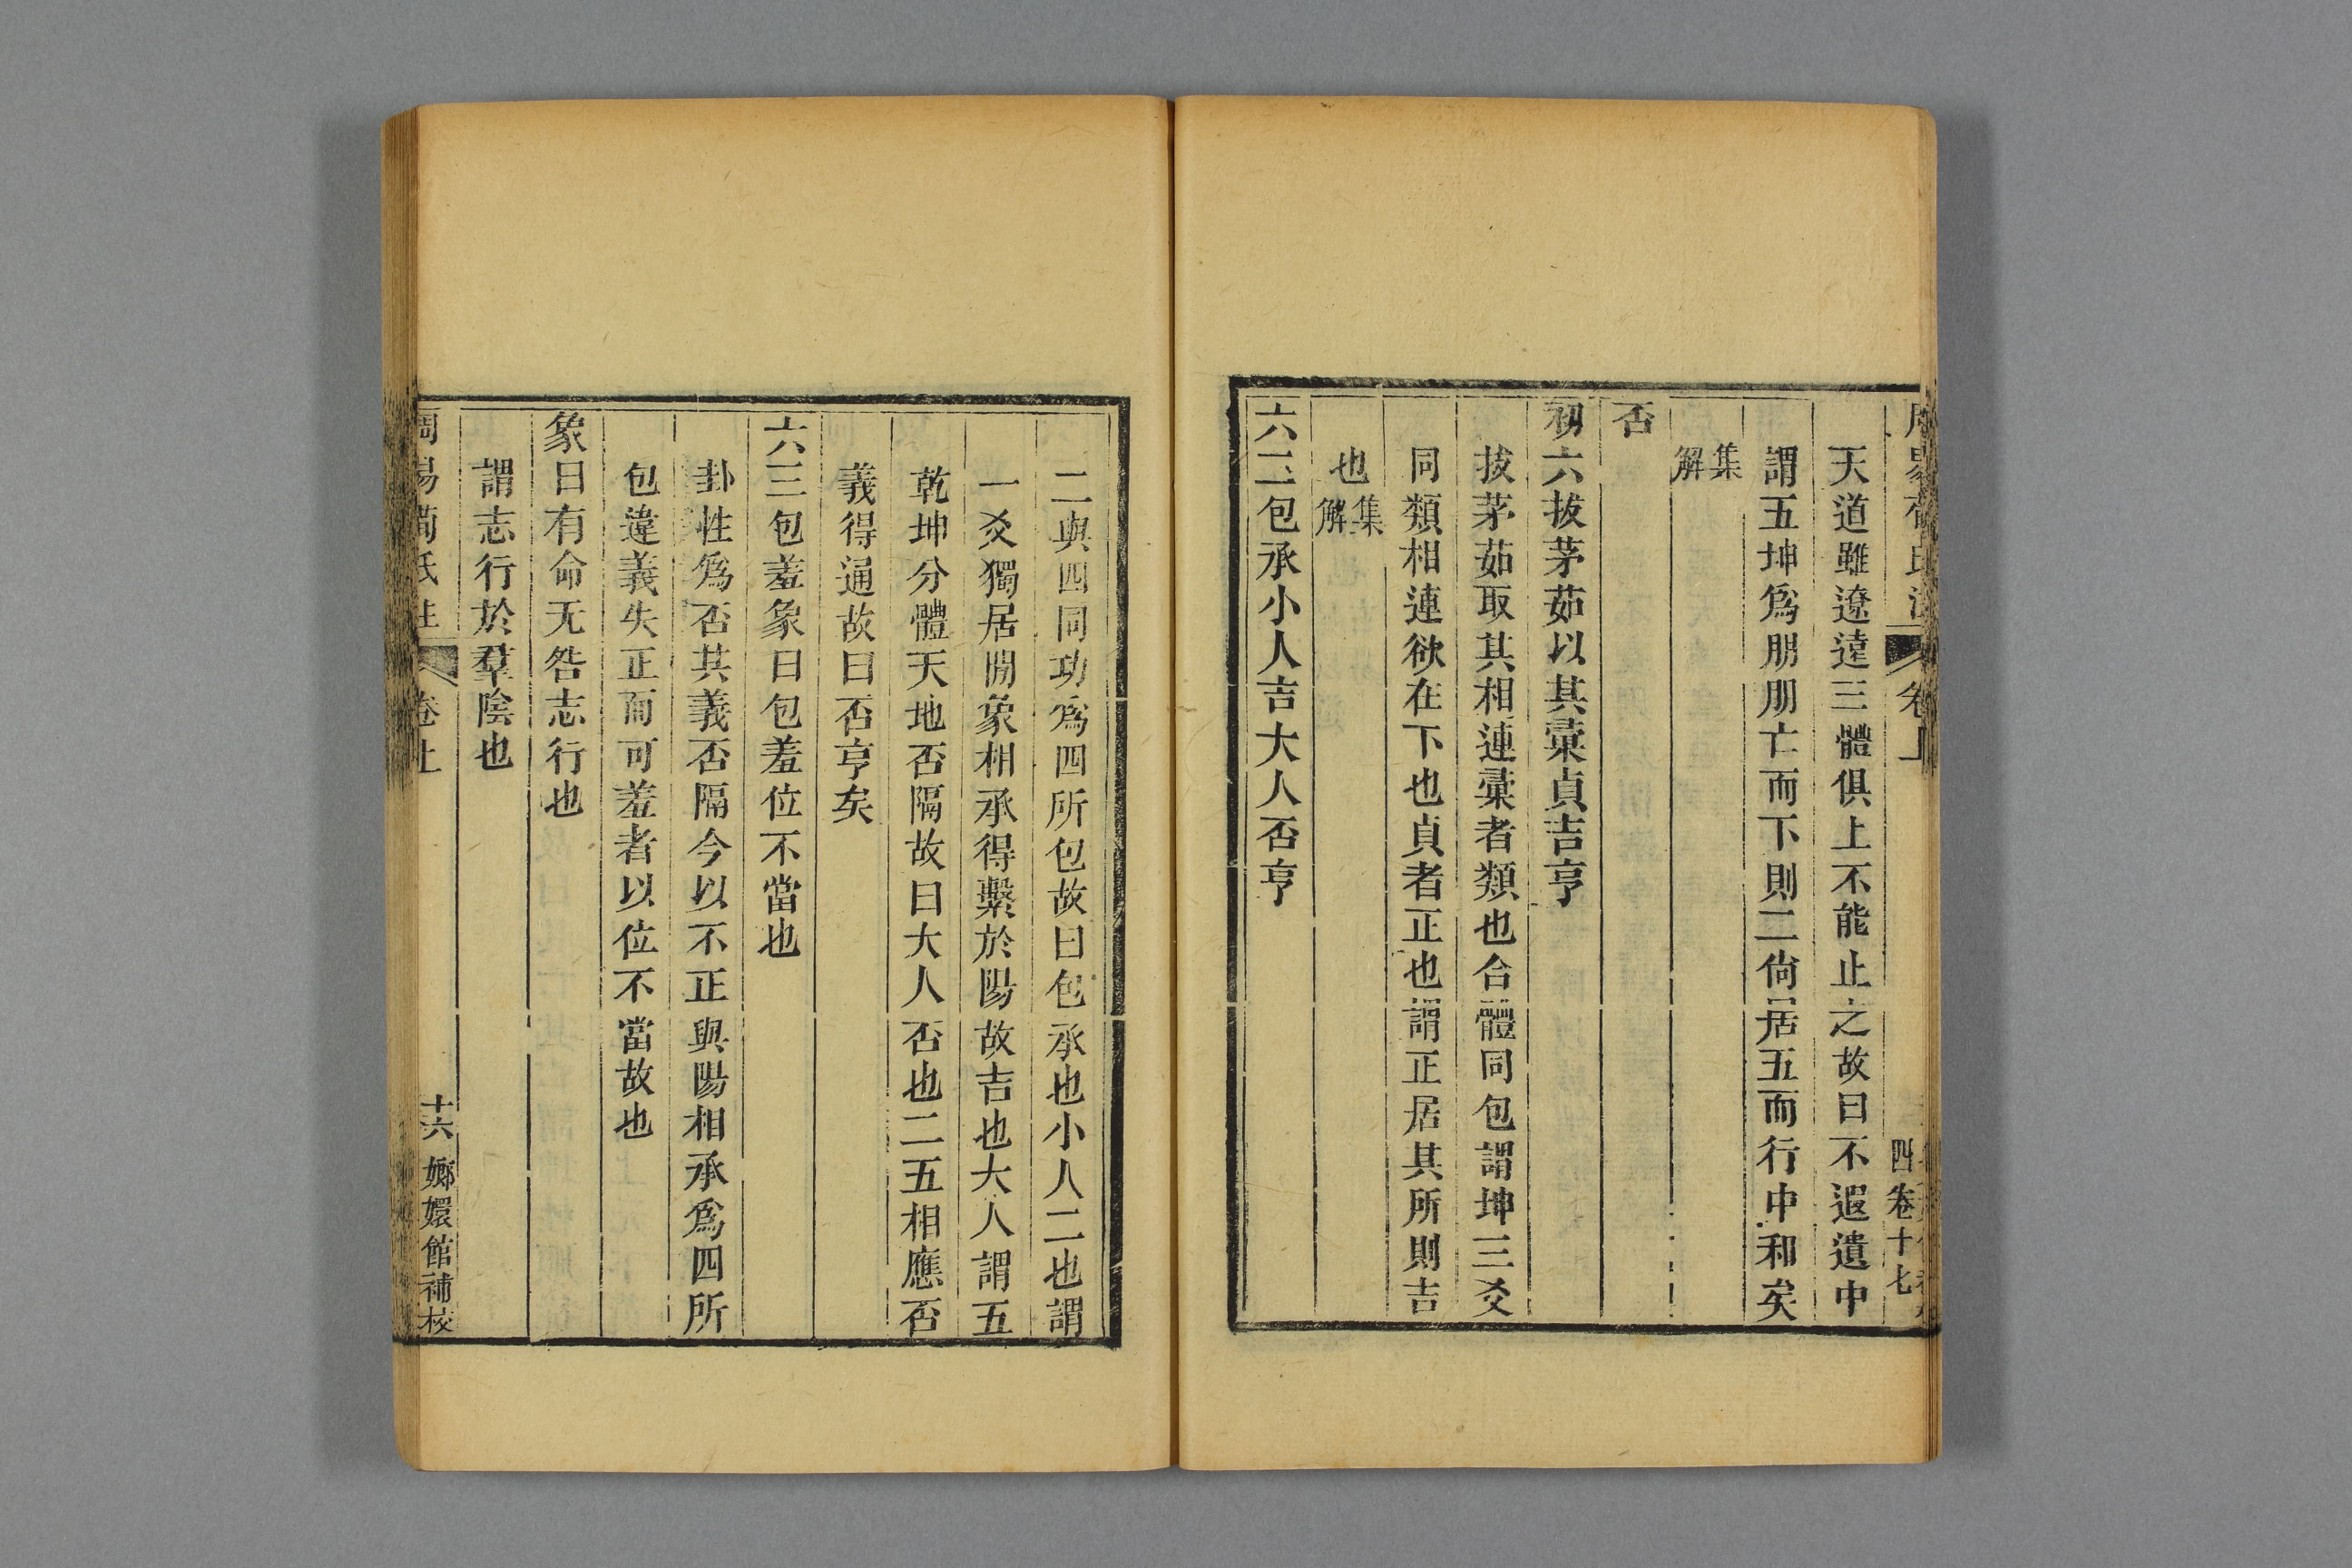 天道雖遼遠三體俱上不能止之故曰不遐遺中
謂五坤爲朋朋亡而下則二尙居五而行中和矣
集解
否
初六拔茅茹以其彙貞吉亨
拔茅茹取其相連彙者類也合體同包謂坤三爻
同類相連欲在下也貞者正也謂正居其所則吉
也集解
六二包承小人吉大人否亨
二與四同功爲四所包故曰包承也小人二也謂
一爻獨居閒象相承得繫於陽故吉也大人謂五
乾坤分體天地否隔故曰大人否也二五相應否
義得通故曰否亨矣
六三包羞象曰包羞位不當也
卦性爲否其義否隔今以不正與陽相承爲四所
包違義失正而可羞者以位不當故也
象曰有命无咎志行也
謂志行於羣陰也
周易荀氏注 卷上 十六 嫏嬛館補校
卷上 四 卷十七